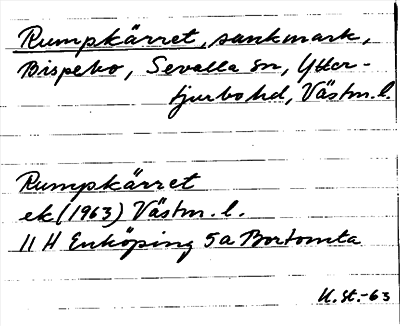 Rumpkärret, sankmark,
Bispebo, Sevalla sn, Ytter-
tjurbo hd, Västm. l.
Rumpkärret
ek (1963) Västm. l.
11 H Enköping 5a Bortomta
K. St. -63